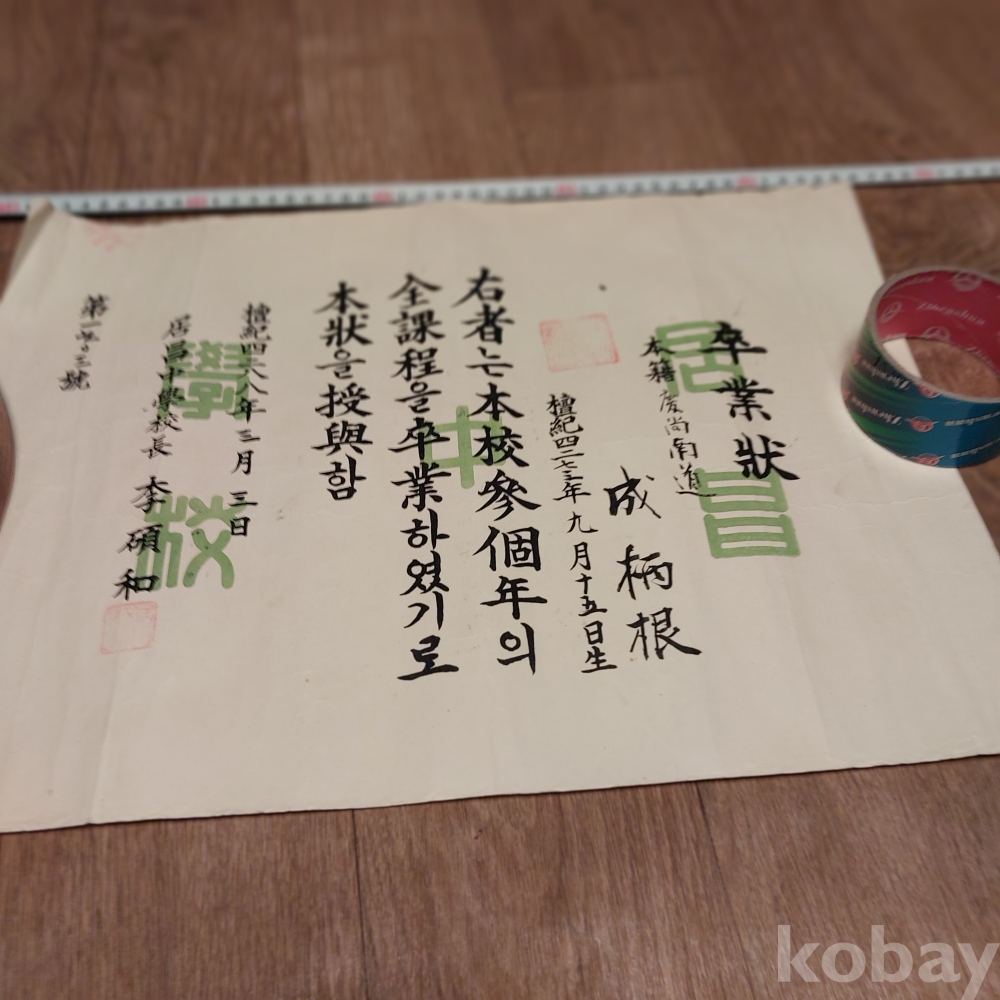 卒業狀
本籍 慶尚南道
成柄根
檀紀四二七三年九月十五日生
右者는本校參個年의
全課程을卒業하였기로
本狀을授與함
檀紀四二八八年三月三日
居昌中學校長 李碩和
號
居昌
中
學校
kobay